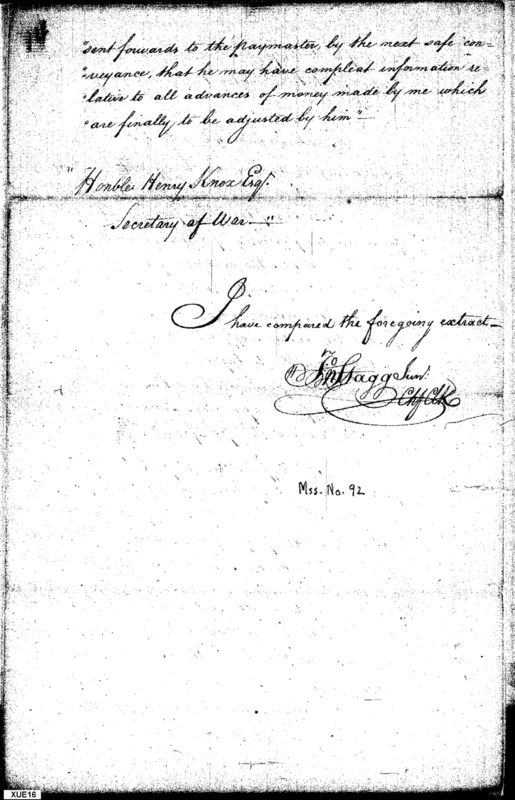 "sent forwards to the paymaster, by the next safe con=
"veyance, that he may have compleat information re
"lative to all advances of money made by me which
"are finally to be adjusted by him"—
"Honble Henry Knox Esqr.
Secretary of War—"
I have compared the foregoing extract—
Jno Stagg Junr.
Chf Clk
Mss. No. 92
XUE16